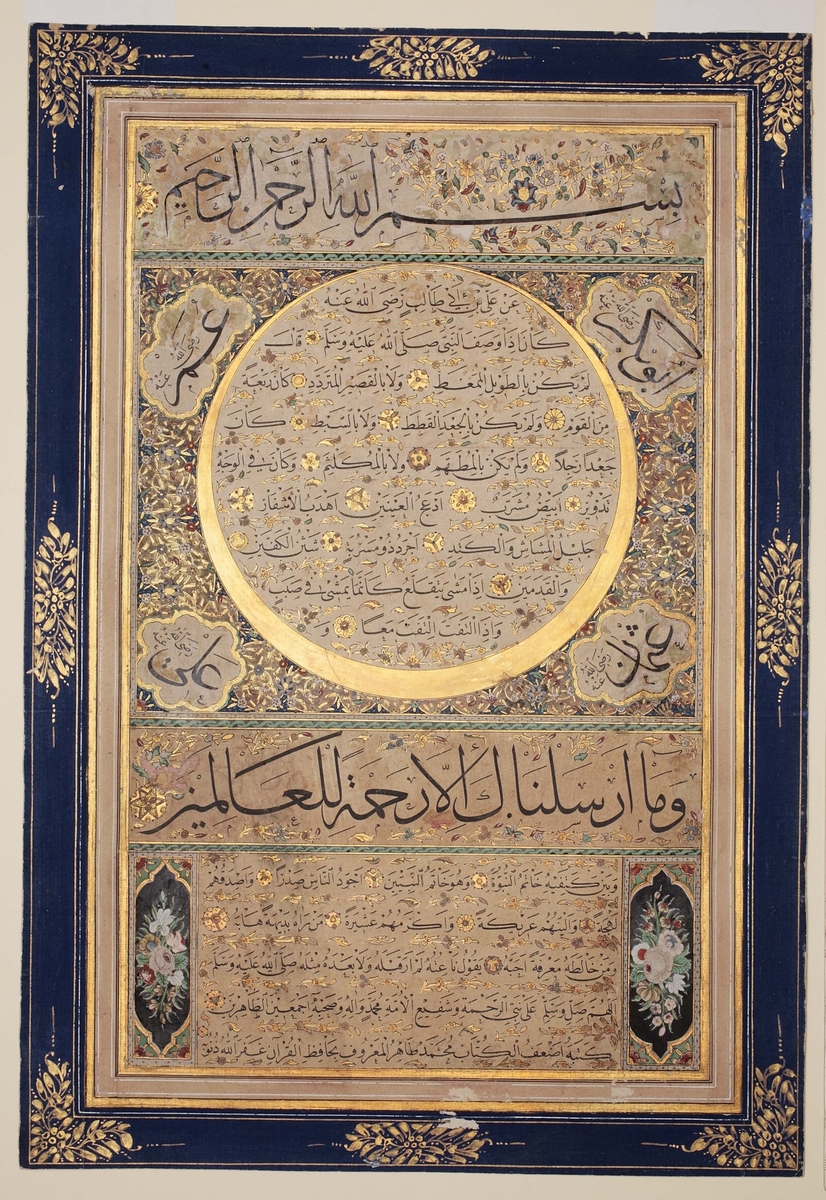 بسم الله الرحمن الرحيم
ابوبكر رضى الله عنه
عمر رضى الله عنه
عن على بن ابى طالب رضى الله عنه
كان اذا وصف النبى صلى الله عليه وسلم قال
لم يكن بالطويل الممغط ولا بالقصير المتردد كان ربعة
من القوم ولم يكن بالجعد القطط ولا بالسبط كان
جعدا رجلا ولم يكن بالمطهم ولا بالمكلثم وكان فى الوجه
تدوير ابيض مشرب ادعج العينين اهدب الاشفار
جليل المشاش والكتد اجرد ذو مسربة شثن الكفين
والقدمين اذا مشى يتقلع كانما يمشى فى صبب
واذا التفت التفت معا و
عثمان رضى الله عنه
على رضى الله عنه
وما ارسلناك الا رحمة للعالمين
وبين كتفيه خاتم النبوة وهو خاتم النبيين اجود الناس صدرا واصدقهم
لهجة والينهم عريكة واكرمهم عشيرة من رآه بديهة هابه
ومن خالطه معرفة احبه يقول ناعته لم ار قبله ولا بعده مثله صلى الله عليه وسلم
اللهم صل وسلم على نبى الرحمة وشفيع الامة محمد وآله وصحبه اجمعين الطاهرين
كتبه اضعف الكتاب محمد طاهر المعروف بحافظ القرآن غفر الله ذنوبه